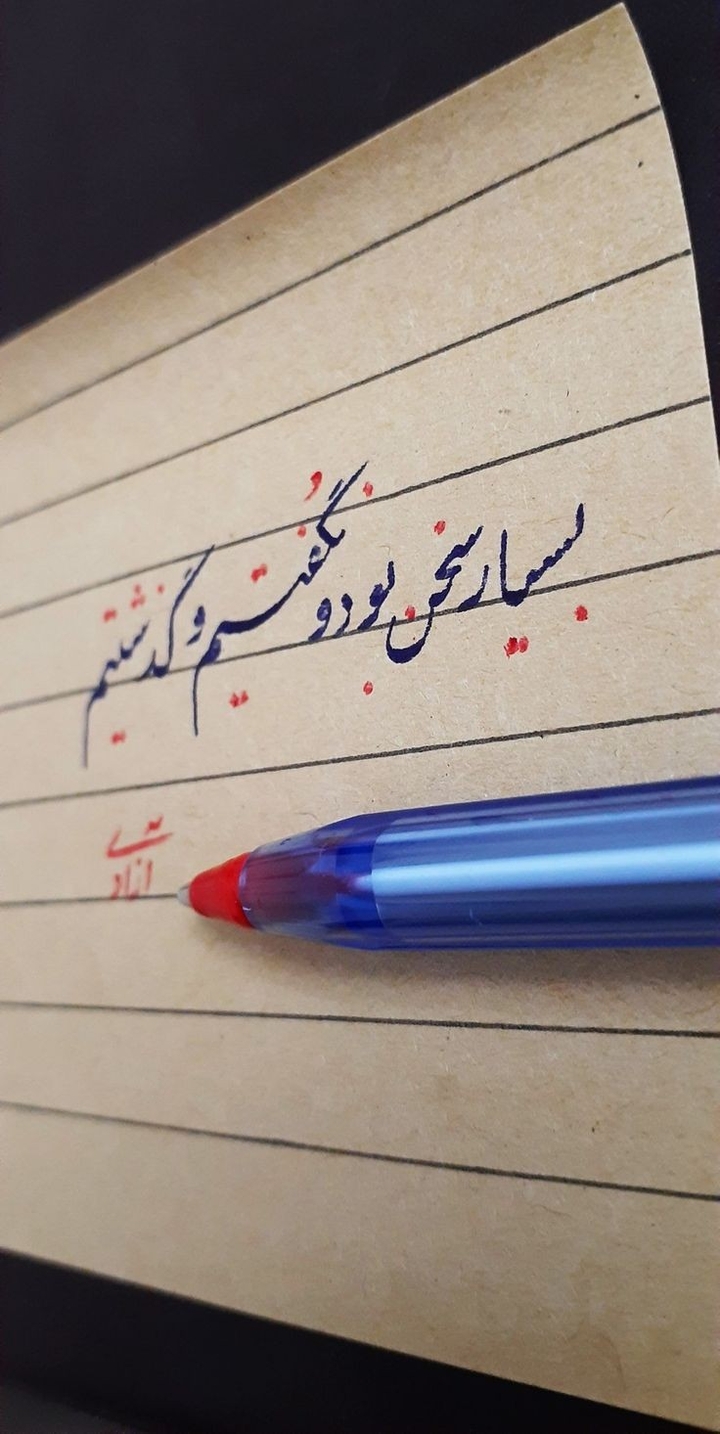 بسیار سخن بود و نگفتیم و گذشتیم
آزاد